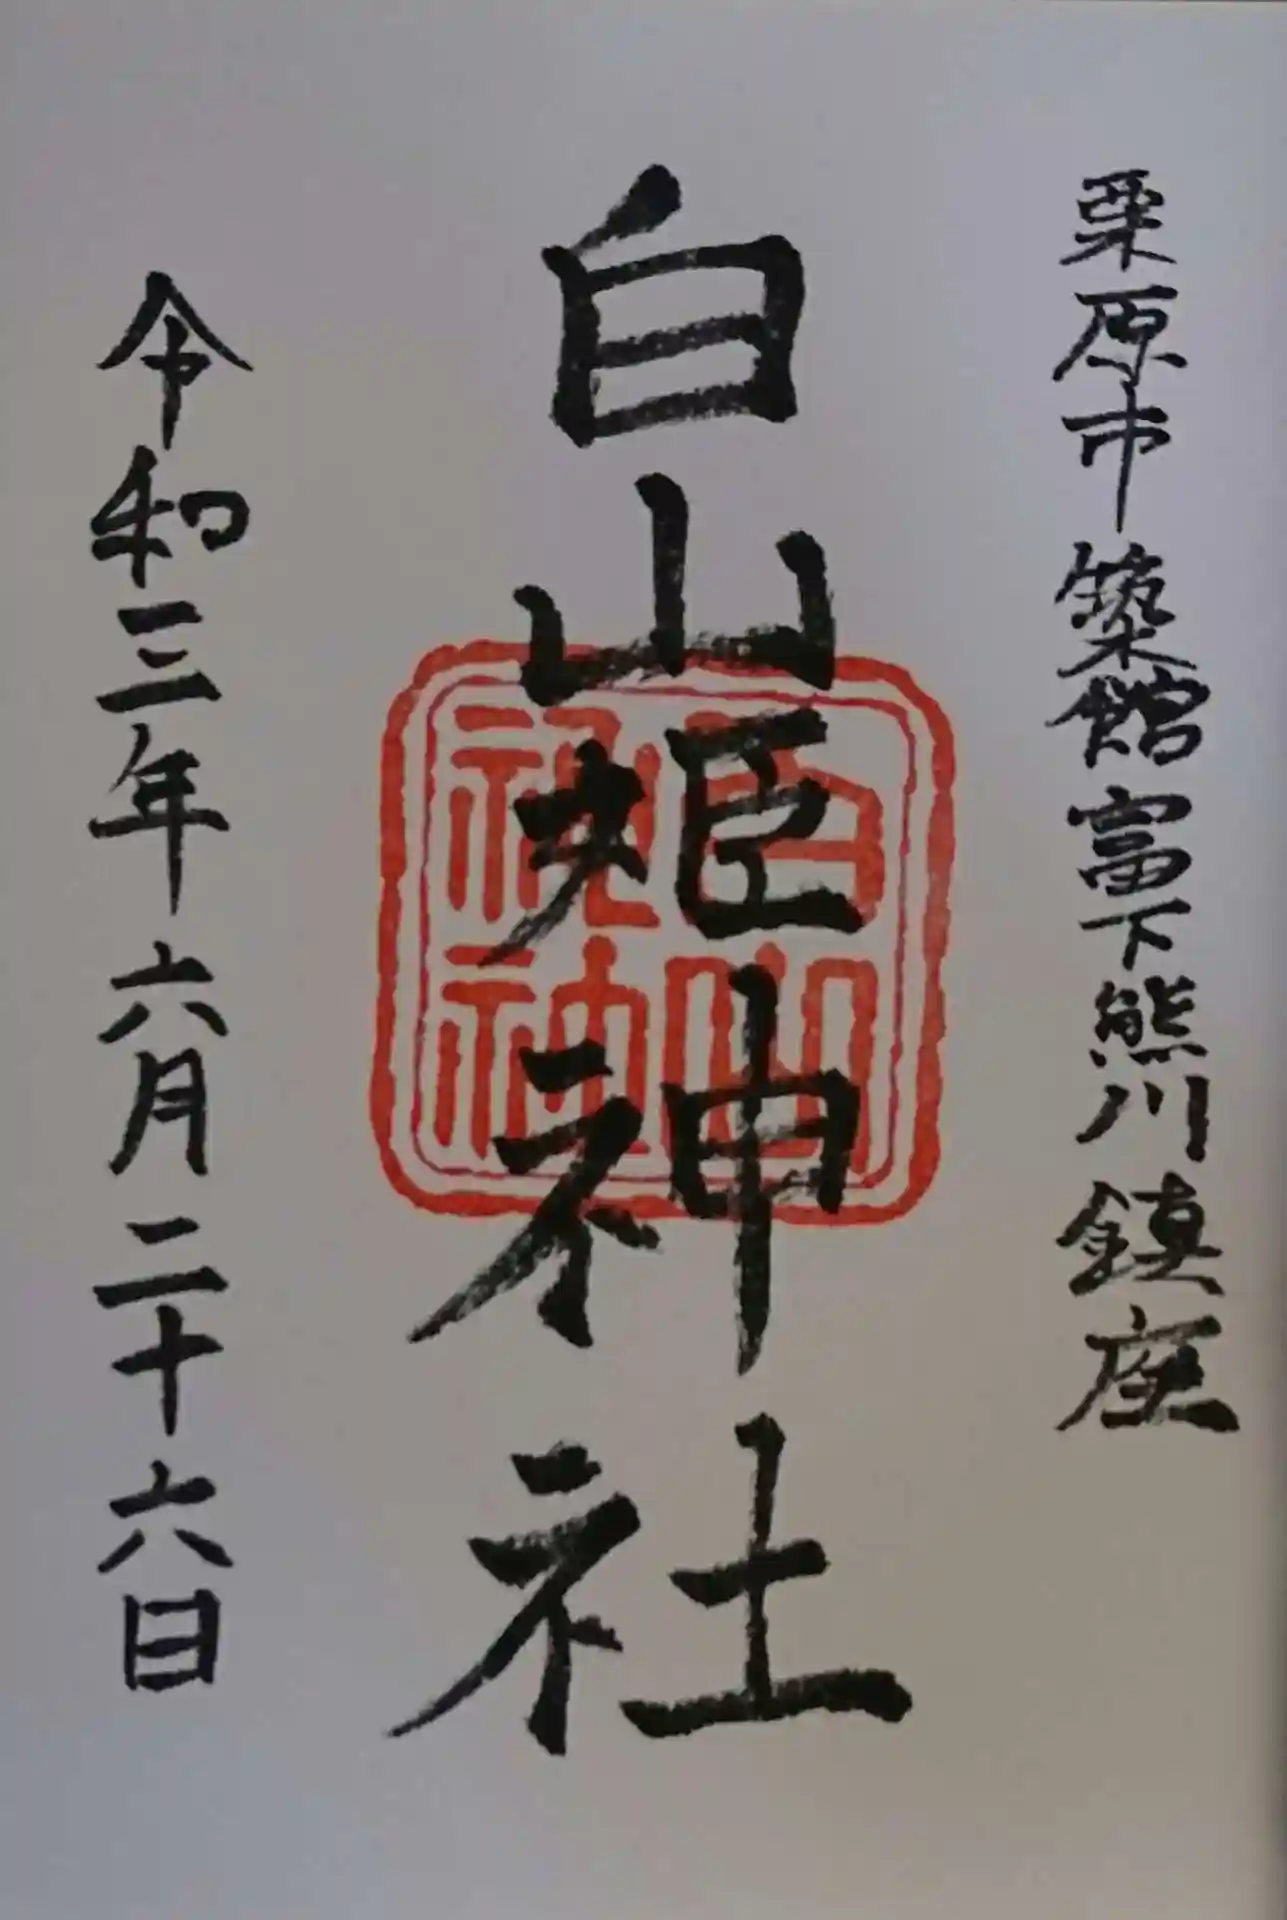 栗原市築館富下熊川鎮座
白山姫神社
白山神社
令和三年六月二十六日